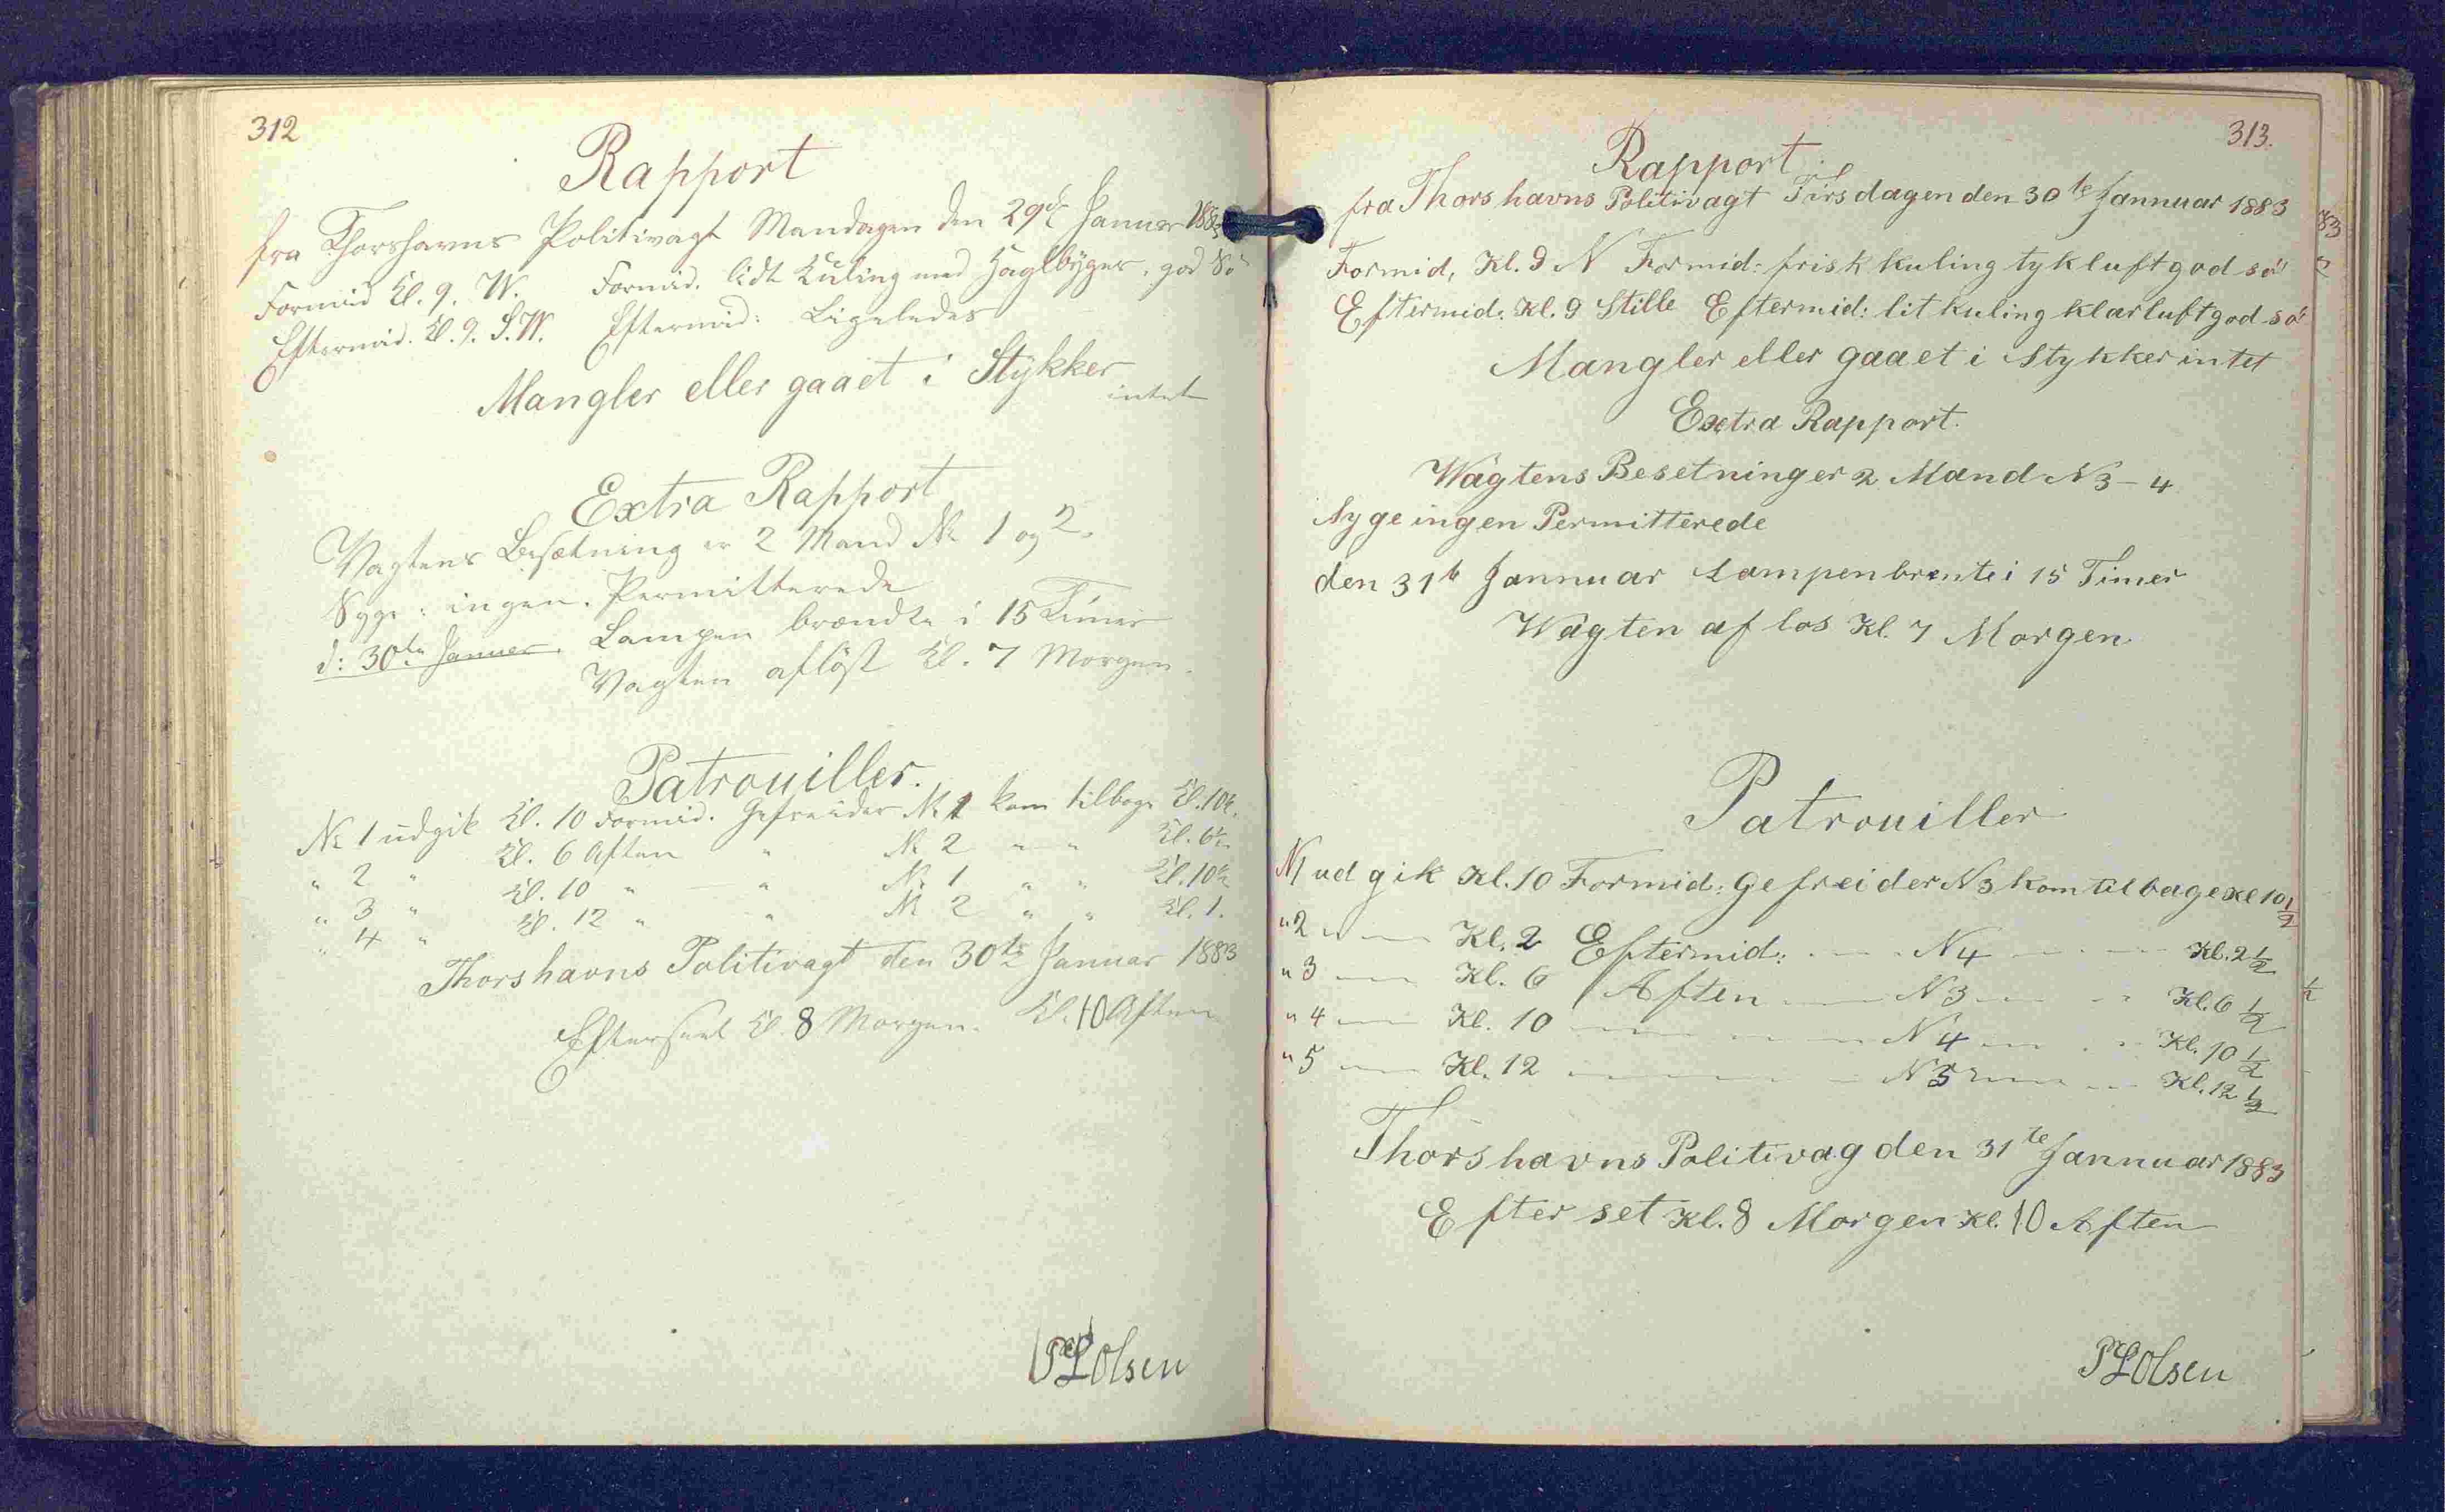 312
Rapport
fra Thorshavns Politivagt Mandagen den 29de Januar 1883
Formid Kl. 9. W. Formid. lidt Kuling med Haglbyger, god Sö
Eftermid. Kl. 9. S.W. Eftermid: Ligeledes
Mangler eller gaaet i Stykker
intet
Extra Rapport
Vagtens Besætning er 2 Mand No 1 og 2.
Syge: ingen. Permitterede
d: 30te Januar. Lampen brændte i 15 Timer
Vagten aflöst Kl. 7 Morgen.
Patrouiller.
No 1 udgik Kl. 10 Formid. Gefreider No 1 kom tilbage Kl. 10½.
" 2 " Kl. 6 Aften " No 2 " " Kl. 6½.
" 3 " Kl. 10 " " No 1 " " Kl. 10½
" 4 " Kl. 12 " " No 2 " " Kl. 1.
Thorshavns Politivagt den 30te Januar 1883
Efterseet Kl. 8 Morgen. Kl. 10 Aften
PLOlsen
313.
Rapport.
fra Thorshavns Politivagt Tirsdagen den 30te Jannuar 1883
Formid, Kl. 9 N Formid: frisk kuling tykluft god sö
Eftermid: Kl. 9 Stille Eftermid: lit kuling klarluft god sö
Mangler eller gaaet i Stykker intet
Extra Rapport.
Wagtens Besetning er 2 Mand N 3 - 4
Syge ingen Permitterede
den 31te Jannuar Lampen brente i 15 Timer
Wagten af los Kl. 7 Morgen.
Patrouiller
N1 udgik Kl. 10 Formid: Gefreider N3 kom tilbage Kl 10½
" 2 " — Kl. 2 Eftermid: — N4 — Kl. 2½
" 3 — Kl. 6 Aften — N3 — Kl. 6½
" 4 — Kl. 10 — N4 — Kl. 10½
" 5 — Kl. 12 — N3 — Kl. 12½
Thorshavns Politivag den 31te Jannuar 1883
Efter set Kl. 8 Morgen Kl. 10 Aften
PLOlsen
83
½